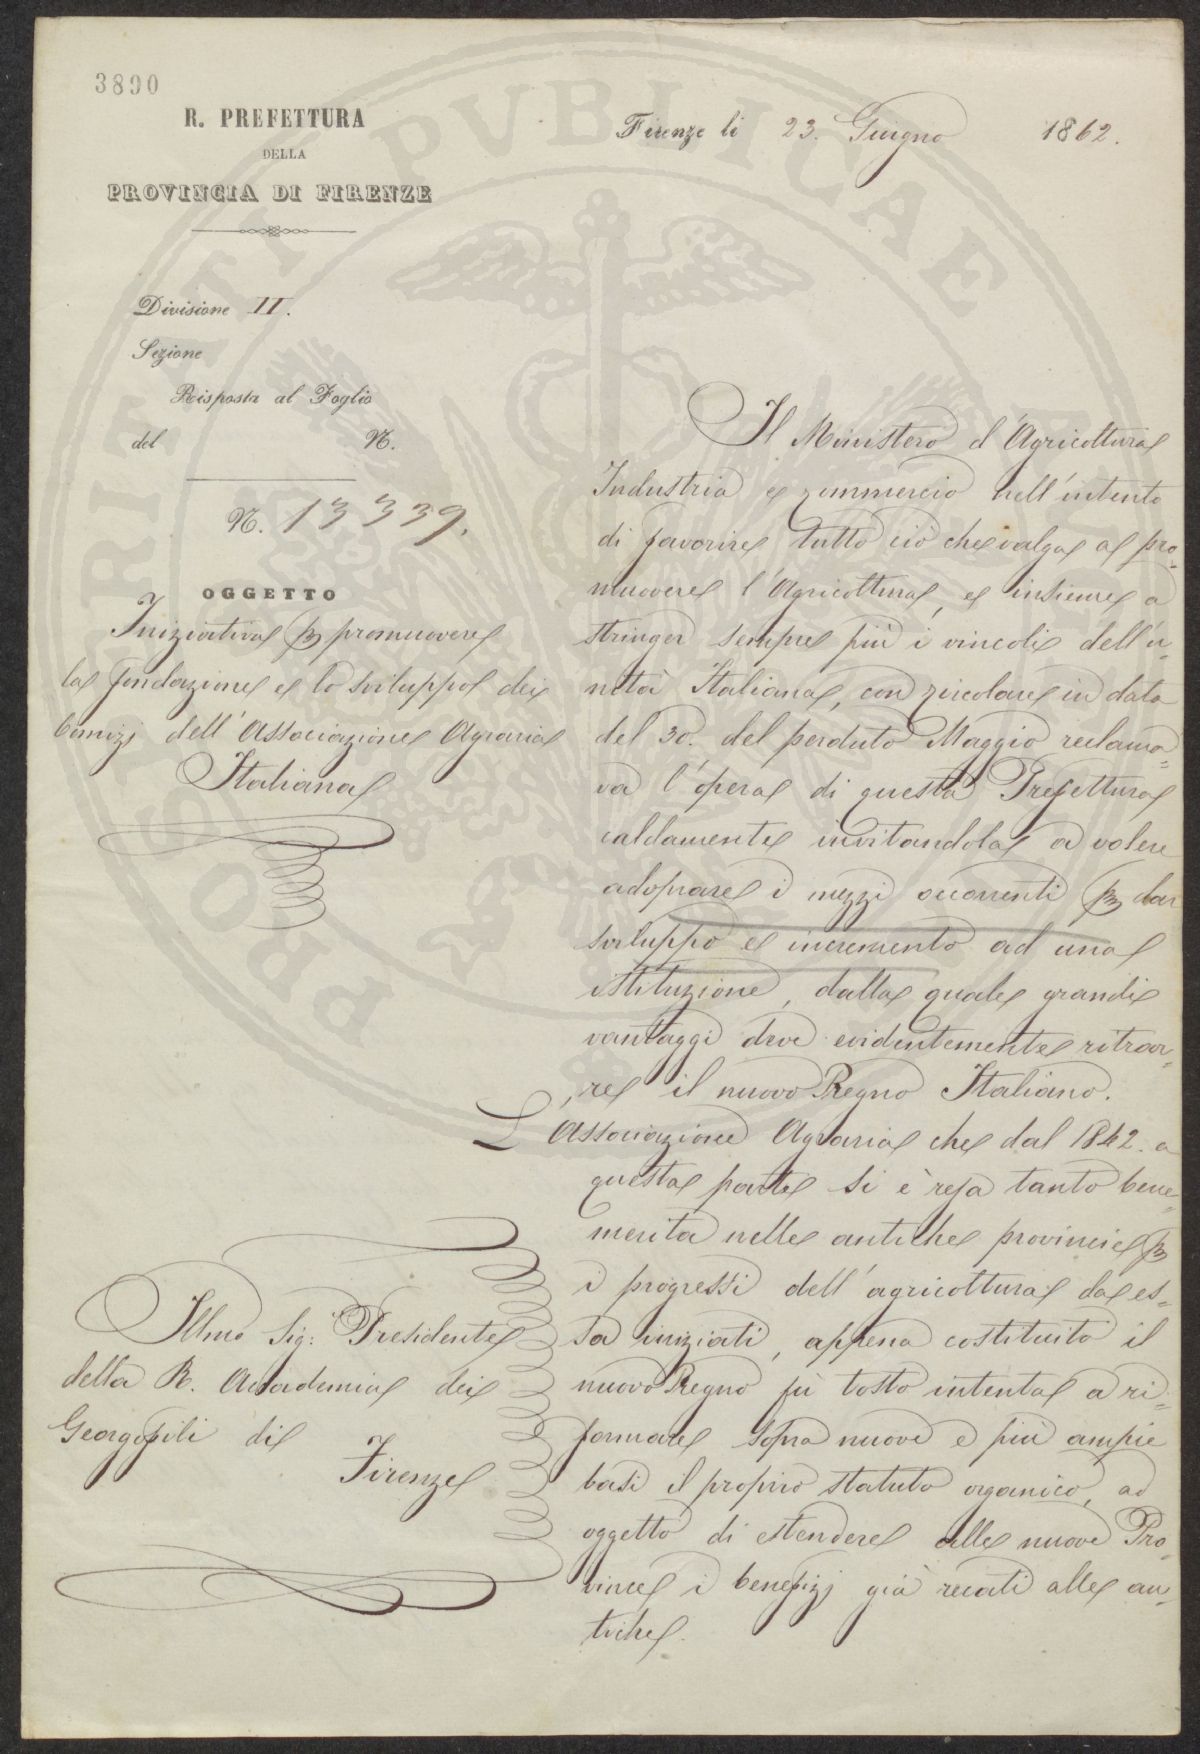 3890
R. PREFETTURA
DELLA
PROVINCIA DI FIRENZE
Firenze li 23. Giugno 1862.
Divisione II.
Sezione
Risposta al Foglio
del N.
N. 13339.
OGGETTO
Iniziativa p promuovere
la fondazione e lo sviluppo dei
Comizj dell'Associazione Agraria
Italiana
Illmo Sig: Presidente
della R. Accademia dei
Georgofili di
Firenze
Il Ministero d'Agricoltura
Industria e Commercio nell'intento
di favorire tutto ciò che valga a pro-
muovere l'Agricoltura, e insieme a
stringer sempre più i vincoli dell'u-
nità Italiana, con circolare in data
del 30. del perduto Maggio reclama-
va l'opera di questa Prefettura
caldamente invitandola a volere
adoprare i mezzi occorrenti p dar
sviluppo e incremento ad una
istituzione, dalla quale grandi
vantaggi deve evidentemente ritrar-
re il nuovo Regno Italiano.
L'Associazione Agraria che dal 1842. a
questa parte si è resa tanto bene-
merita nelle antiche provincie p
i progressi dell'agricoltura da es-
sa iniziati, appena costituito il
nuovo Regno fù tosto intenta a ri-
formare sopra nuove e più ampie
basi il proprio statuto organico, ad
oggetto di estendere alle nuove Pro-
vince i benefizj già recati alle an-
tiche.
PROSPERITATI PUBLICAE